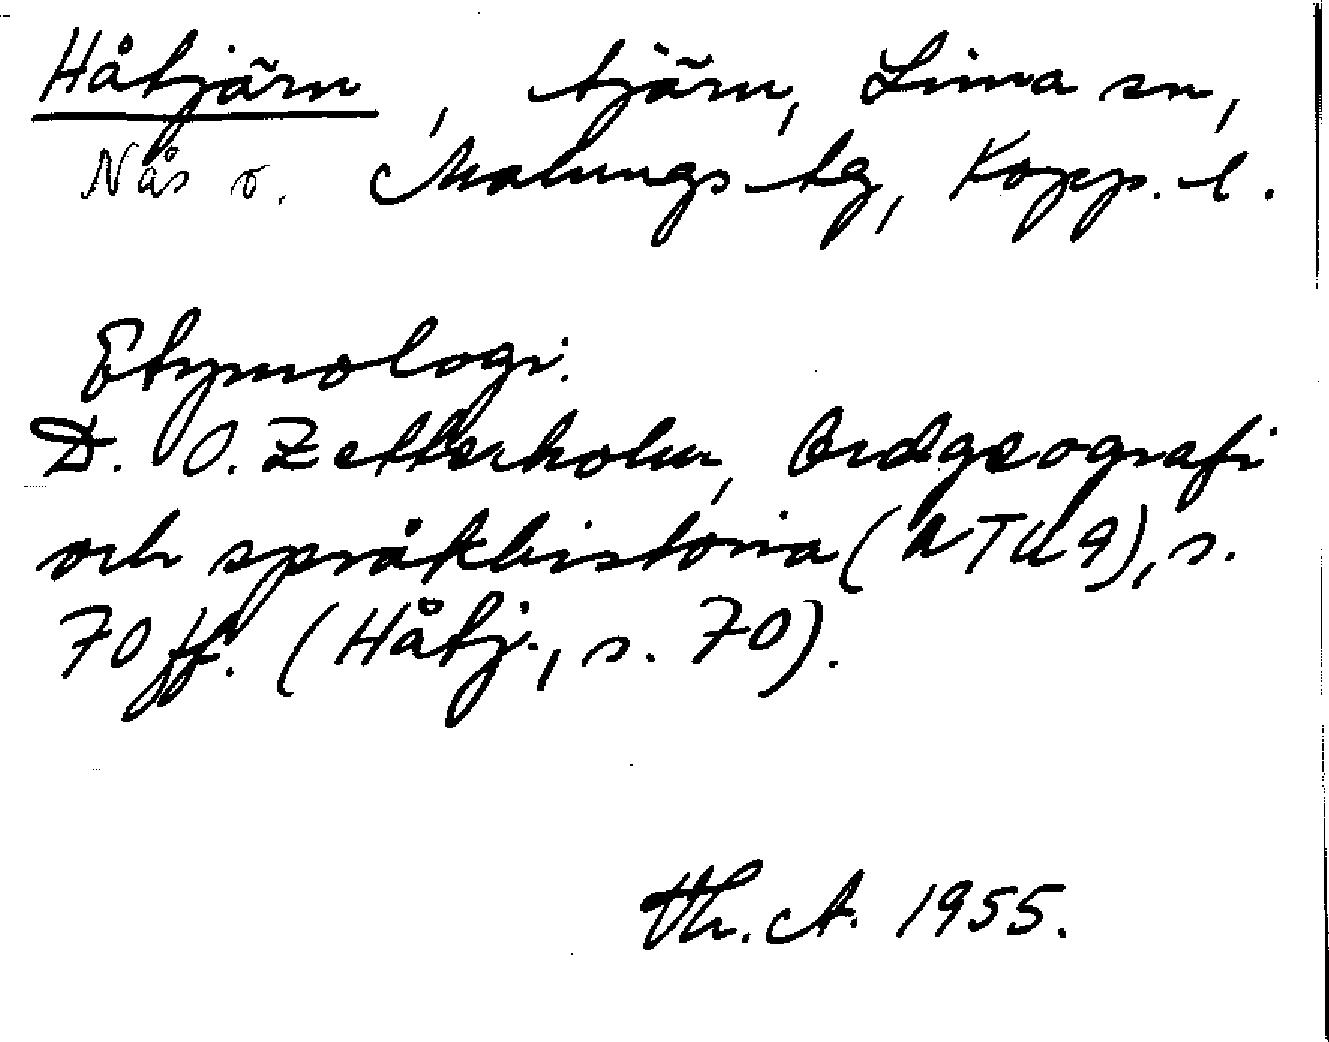 Håtjärn, tjärn, Lima sn,
Nås o. Malungs tg, Kopp. l.
Etymologi:
D. O. Zetterholm, Ordgeografi
och språkhistoria (NTU 9), s.
70 ff. (Håtj., s. 70).
Th. A. 1955.